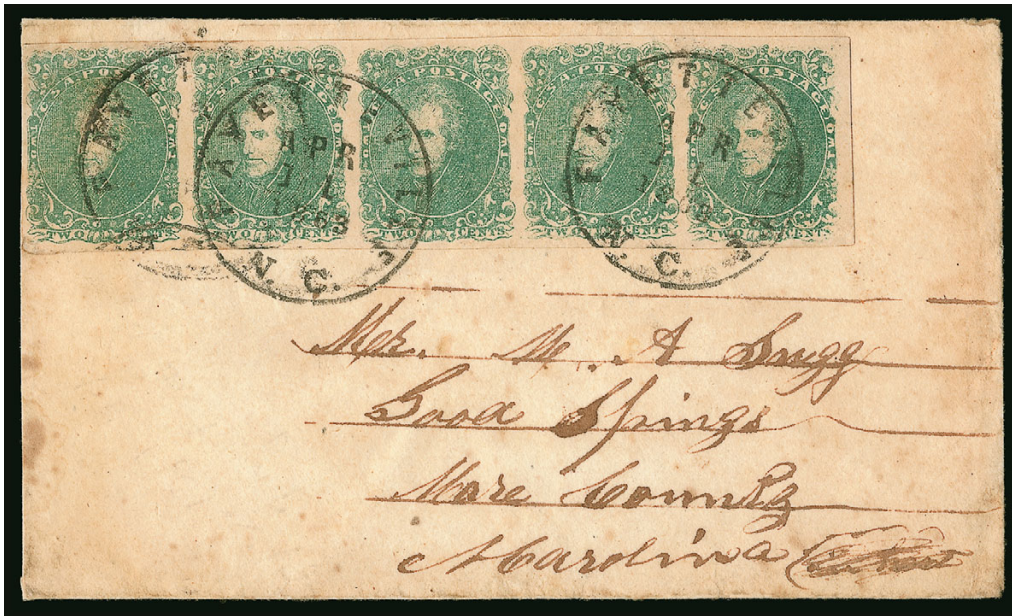 C·S·A·POSTAGE TWO CENTS
C·S·A·POSTAGE TWO CENTS
C·S·A·POSTAGE TWO CENTS
C·S·A·POSTAGE TWO CENTS
C·S·A·POSTAGE TWO CENTS
FAYET
FAYETTEVILLE
APR
1
1863
N. C.
FAYETTEVILLE
APR
1
1863
N. C.
M. A Sugg
Good Springs
More County
N Carolina